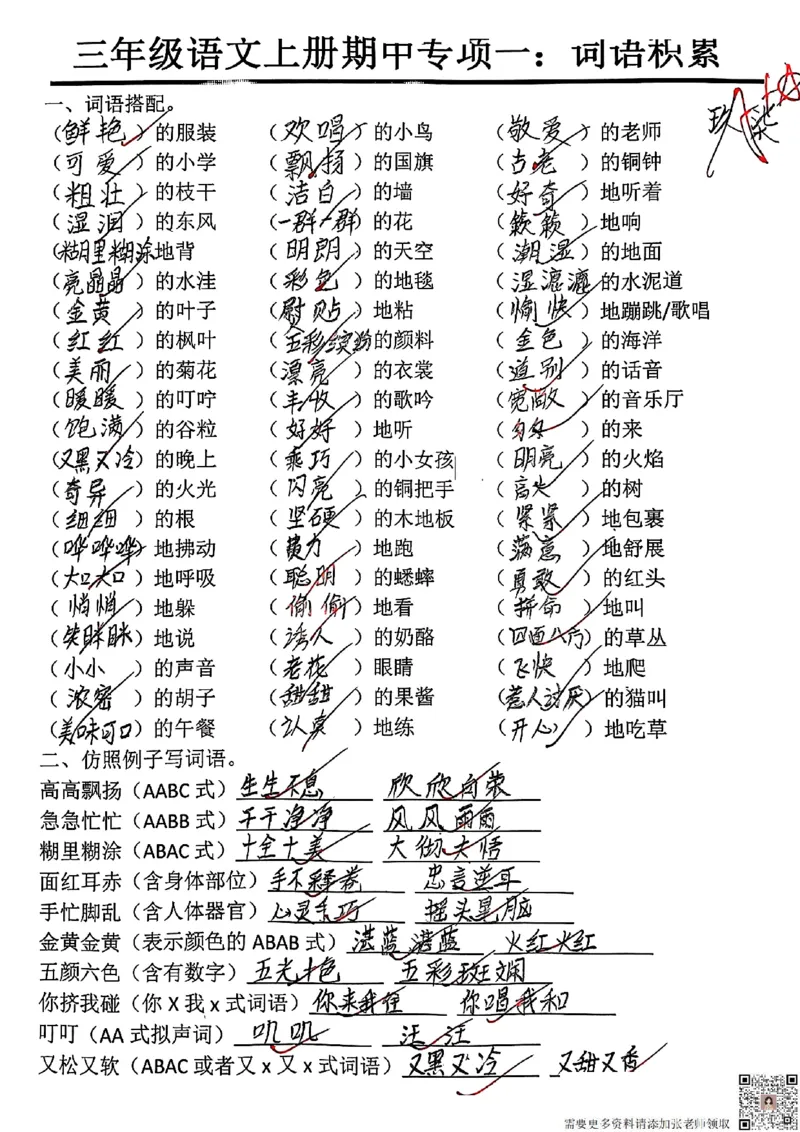 三年级语文上册期中专项一：词语积累
一、词语搭配。
（鲜艳）的服装 （欢唱）的小鸟 （敬爱）的老师
（可爱）的小学 （飘扬）的国旗 （古老）的铜钟
（粗壮）的枝干 （洁白）的墙 （好奇）地听着
（湿润）的东风 （一群一群）的花 （簌簌）地响
（糊里糊涂地背 （明朗）的天空 （潮湿）的地面
（亮晶晶）的水洼 （彩色）的地毯 （湿漉漉的水泥道
（金黄）的叶子 （尉贴）地粘 （愉快）地蹦跳/歌唱
（红红）的枫叶 （五彩缤纷的颜料 （金色）的海洋
（美丽）的菊花 （漂亮）的衣裳 （道别）的话音
（暖暖）的叮咛 （丰收）的歌吟 （宽敞）的音乐厅
（饱满）的谷粒 （好好）地听 （匆匆）的来
（又黑又冷）的晚上 （乖巧）的小女孩 （明亮）的火焰
（奇异）的火光 （闪亮）的铜把手 （高大）的树
（细细）的根 （坚硬）的木地板 （紧紧）地包裹
（哗哗哗）地拂动 （费力）地跑 （满意）地舒展
（大口大口）地呼吸 （聪明）的蟋蟀 （勇敢）的红头
（悄悄）地躲 （偷偷）地看 （拼命）地叫
（笑眯眯）地说 （诱人）的奶酪 （四面八方）的草丛
（小小）的声音 （老花）眼睛 （飞快）地爬
（浓密）的胡子 （甜甜）的果酱 （惹人讨厌）的猫叫
（美味可口）的午餐 （认真）地练 （开心）地吃草
二、仿照例子写词语。
高高飘扬（AABC 式）生生不息 欣欣向荣
急急忙忙（AABB 式）干干净净 风风雨雨
糊里糊涂（ABAC 式）十全十美 大彻大悟
面红耳赤（含身体部位）手不释卷 忠言逆耳
手忙脚乱（含人体器官）心灵手巧 摇头晃脑
金黄金黄（表示颜色的 ABAB 式）湛蓝湛蓝 火红火红
五颜六色（含有数字）五光十色 五彩斑斓
你挤我碰（你 X 我 x 式词语）你来我往 你唱我和
叮叮（AA 式拟声词）叽叽 汪汪
又松又软（ABAC 或者又 x 又 x 式词语）又黑又冷 又甜又香
需要更多资料请添加张老师领取